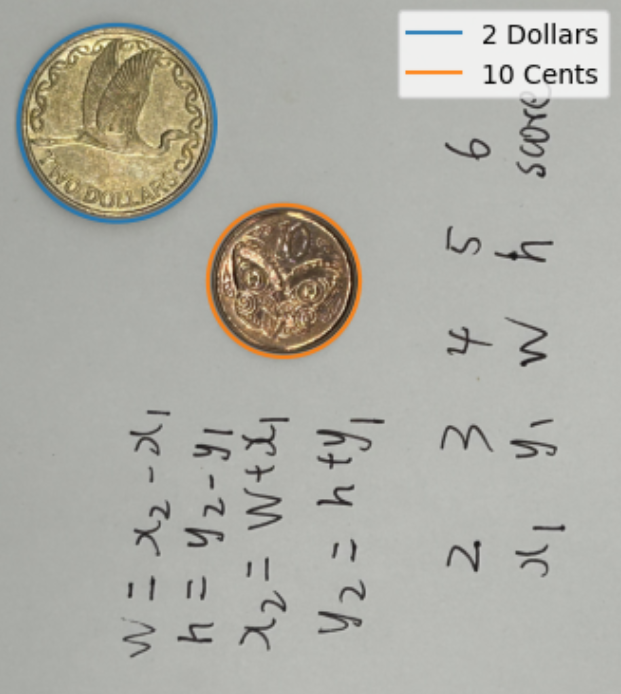 2 Dollars
10 Cents
TWO DOLLARS
10
w = x2 - x1
h = y2 - y1
x2 = w + x1
y2 = h + y1
2 3 4 5 6
x1 y1 w h score